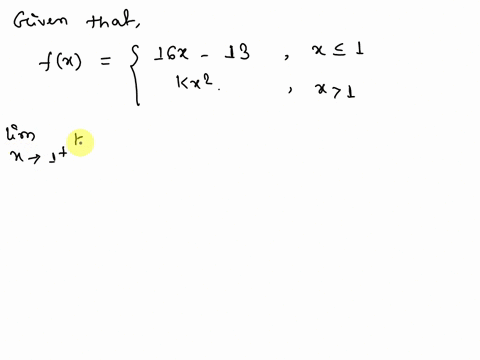 Given that,
f(x) = { 16x - 13 , x ≤ 1
kx². , x > 1
lim k
x → 1⁺